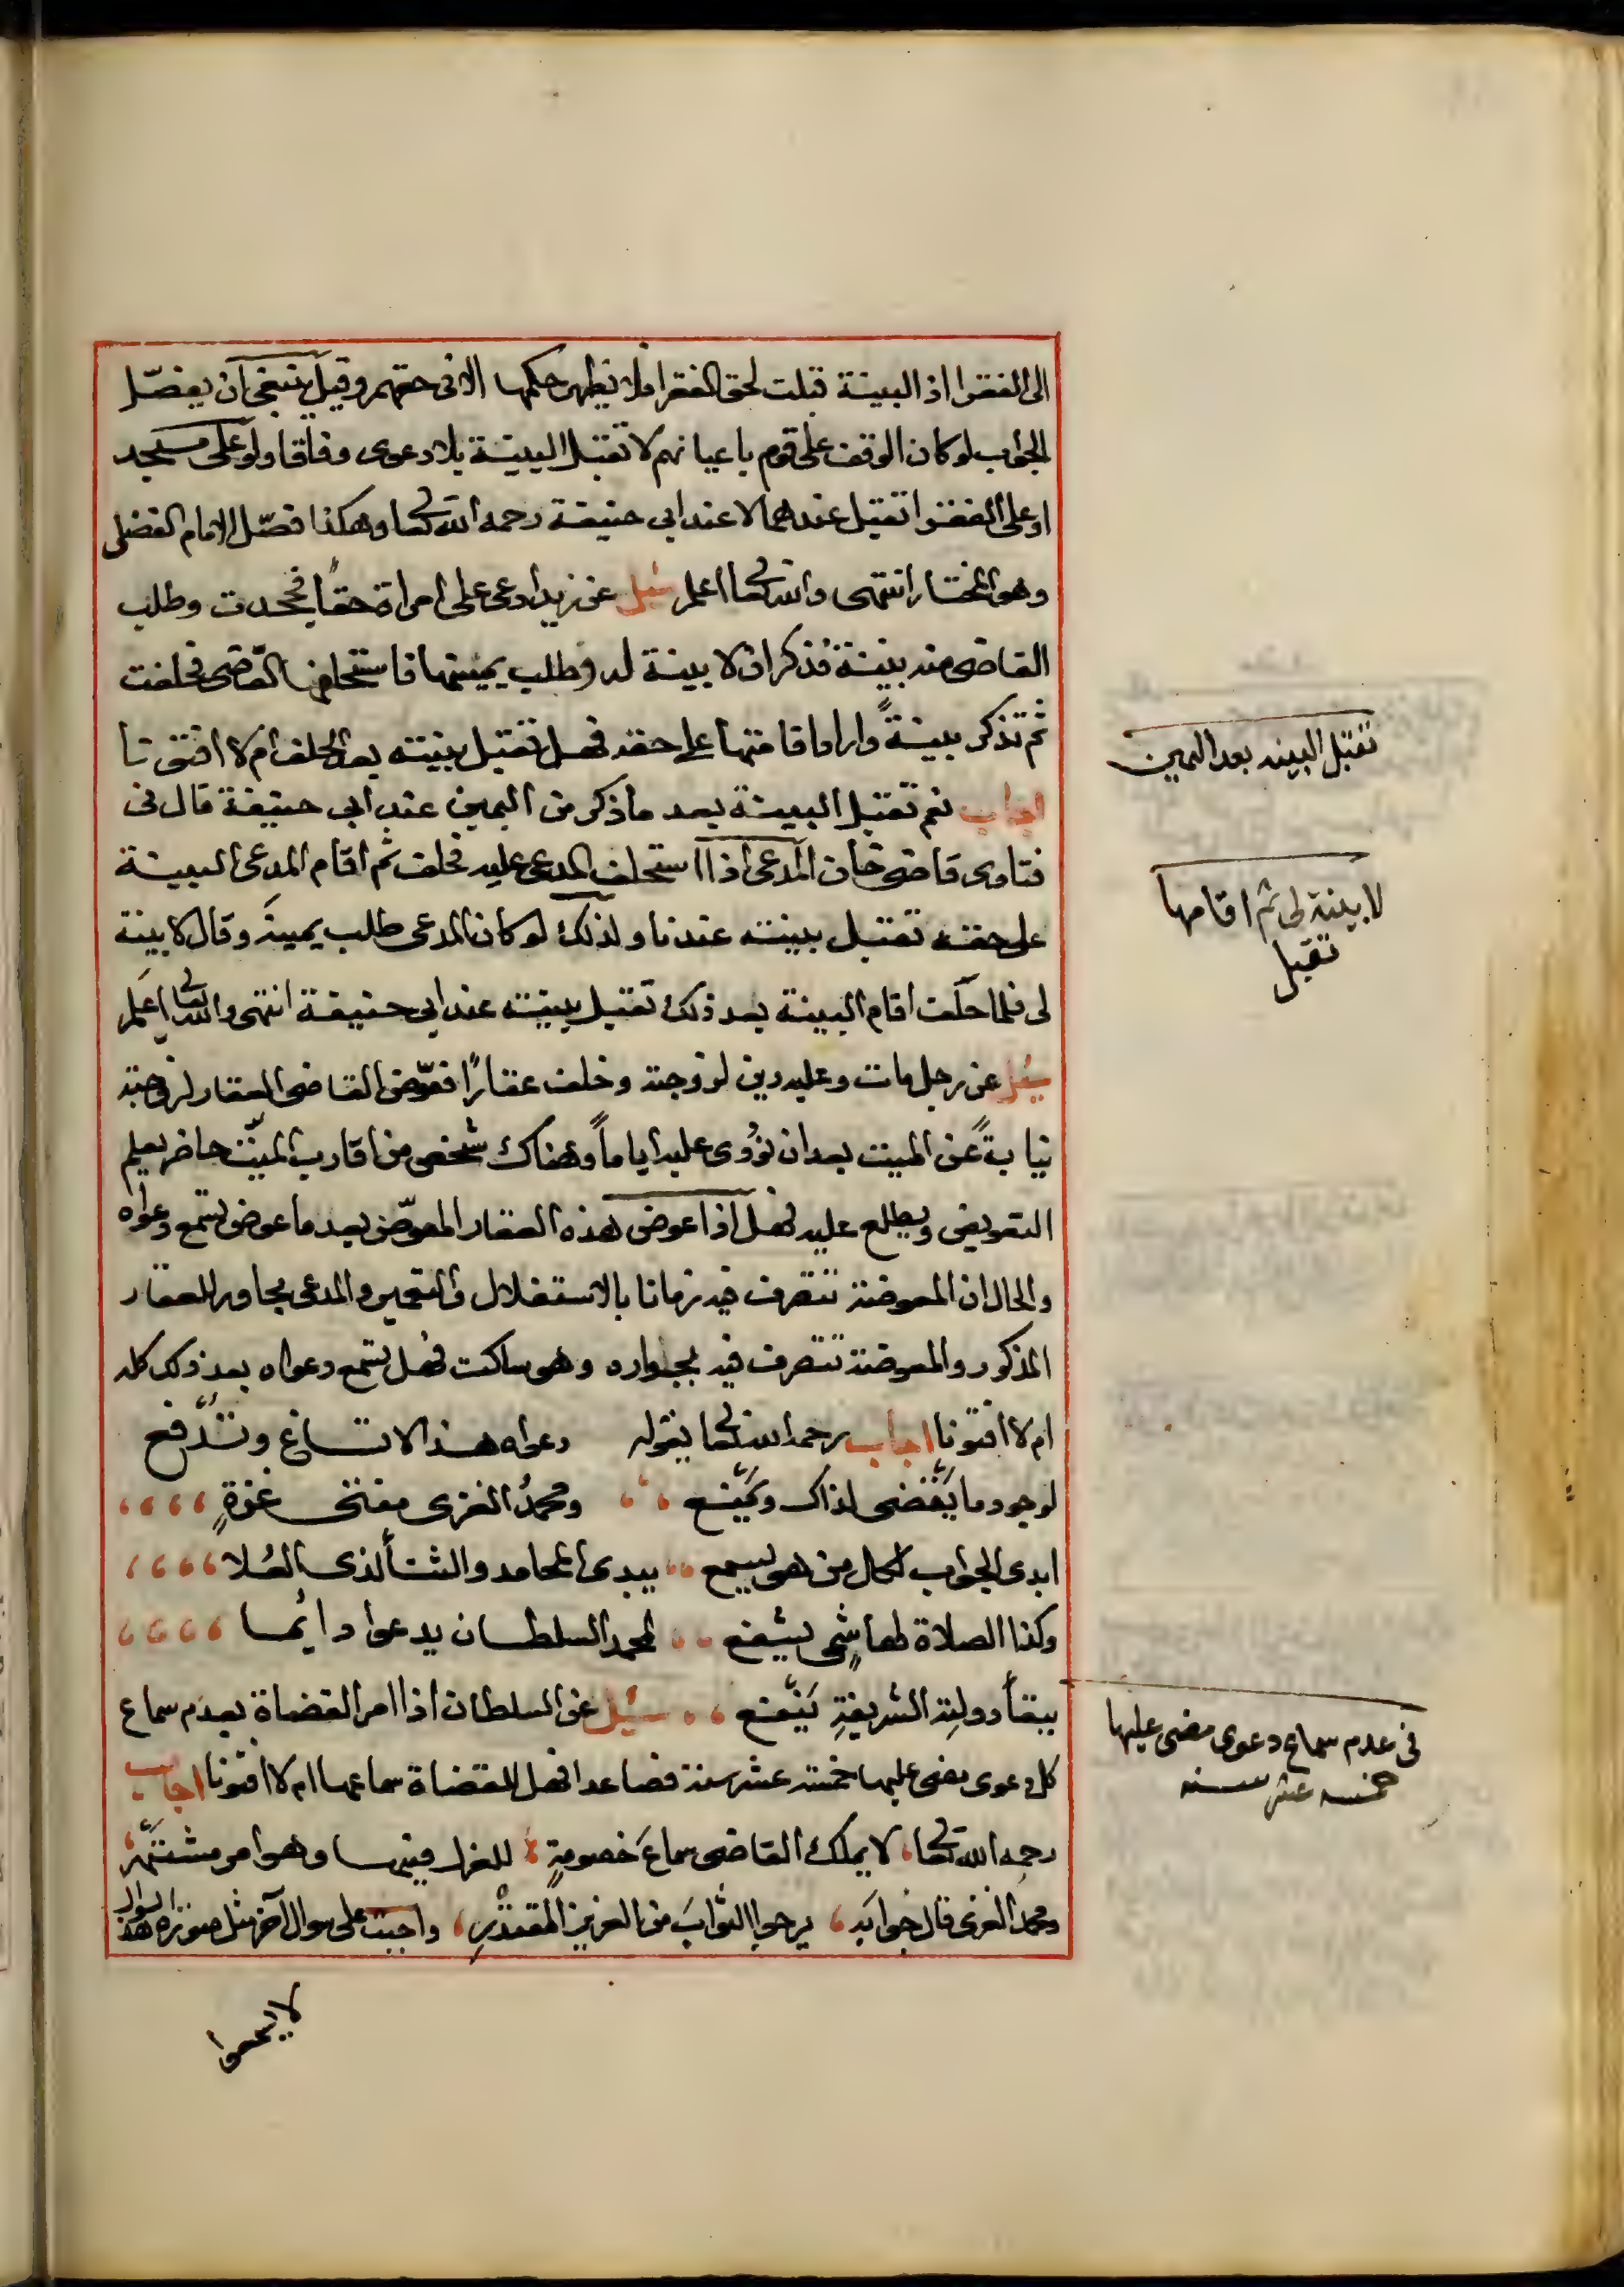 الى الفقرا اذ البينة قبلت لحق الفقرا فلا يظهر حكمها الا فى حقهم وقيل ينبغى ان يفصّل
الجواب لو كان الوقف على قوم باعيانهم لا تقبل البينة بلا دعوى وفاقا ولو على مسجد
او على الفقرا تقبل عندهما لا عند ابى حنيفة رحمه الله تعا وهكذا فصّل الامام الفضلى
وهو المختار انتهى والله تعا اعلم سُئِل عن زيد ادعى على امراة حقًا فجحدت وطلب
القاضى منه بينة فذكر ان لا بينة له وطلب يمينها فاستحلفها القاضى فحلفت
ثم تذكر بينةً واراد اقامتها على حقه فهل تقبل بينته بعد الحلف ام لا افتونا
اجاب نعم تقبل البينة بعد ما ذكر من اليمين عند ابى حنيفة قال فى
فتاوى قاضى خان المدعى اذا استحلف المدعى عليه فحلف ثم اقام المدعى البينة
على حقه تقبل بينته عندنا ولذلك لو كان المدعى طلب يمينه وقال لا بينة
لى فلما حلف اقام البينة بعد ذلك تقبل بينته عند ابى حنيفة انتهى والله تعا اعلم
سئل عن رجل مات وعليه دين لزوجته وخلف عقارًا فعوّض القاضى العقار لزوجته
نيابةً عن الميت بعد ان نُودى عليه اياماً وهناك شخص من اقارب الميّت حاضر يعلم
التعويض ويطلع عليه فهل اذا عوض هذه العقار المعوّض بعد ما عوض تسمع دعواه
والحال ان المعوضة تتصرف فيه زمانا بالاستغلال والتعمير والمدعى مجاور للعقار
المذكور والمعوضة تتصرف فيه بجواره وهو ساكت فهل تسمع دعواه بعد ذلك كله
ام لا افتونا اجاب رحمه الله تعا بقوله دعواه هذا لا تساغ وتُدفع
لوجود ما يقضى لذاك ويمنع ومحمدُ الغزى مفتى غزةٍ
ابدى الجواب لكل من هو يسمع يبدى المحامد والثنأ لذى العُلا
وكذا الصلاة لهاشمىٍ يشفع لمحمد السلطان يدعوا دائما
ببقأ دولتِه الشريفةِ يَنْفع سُئِل عن السلطان اذا امر القضاة بعدم سماع
كل دعوى مضى عليها خمسة عشر سنة فصاعدا فهل للقضاة سماعها ام لا افتونا اجاب
رحمه الله تعا لا يملك القاضى سماعَ خصومةٍ للعزل فيها وهو امر مشتهر
ومحمد الغزى قال جوابَه يرجوا الثوابَ من العزيز المقتدرِ واجبت على سوال آخر مثل صورة هذا السوال
لا يسمعوا
تقبل البينه بعد اليمين
لا بينة لى ثم اقامها
تقبل
فى عدم سماع دعوى مضى عليها
خمسه عشر سنه